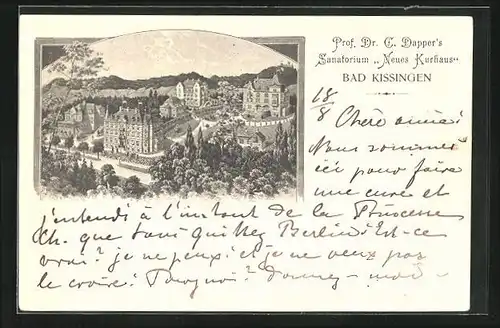 Prof. Dr. C. Dapper's
Sanatorium „Neues Kurhaus“
BAD KISSINGEN
18/8
Chère amie!
Nous sommes
ici pour faire
une cure et
j'entends à l'instant de la Princesse
Ch. que vous quittez Berlin! Est-ce
vrai? je ne peux et je ne veux pas
le croire! Pourquoi? donnez-moi